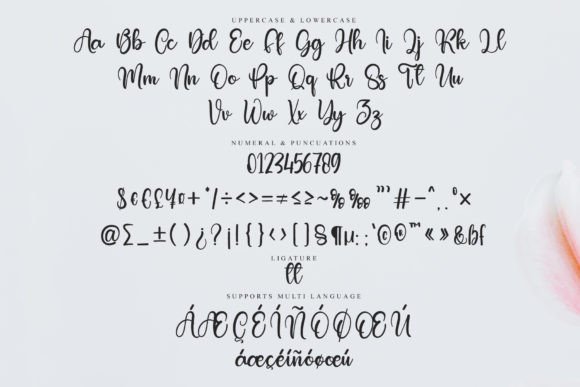 UPPERCASE & LOWERCASE
Aa Bb Cc Dd Ee Ff Gg Hh Ii Jj Kk Ll
Mm Nn Oo Pp Qq Rr Ss Tt Uu
Vv Ww Xx Yy Zz
NUMERAL & PUNCUATIONS
0123456789
$¢€£¥¤+°/÷<>=≠≤≥~%‰"'#-^.,ºx
@∑_±()¿?¡!{}‹›[]§¶µ:;'©®™«»&bf
LIGATURE
tt
SUPPORTS MULTI LANGUAGE
ÁÆÇÉÍÑÓØŒÚ
áæçéíñóøœú